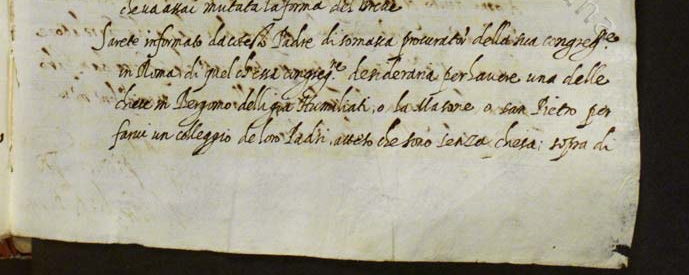 che va assai mutata la forma del breve
Sarete informato da cotesto Padre di somasca procurator della sua congreg.ne
in Roma di quel ch'essa congreg.ne desideraria per havere una delle
chiese in Bergomo delli già Humiliati, o la Masone o san Pietro per
farvi un colleggio de loro Padri, atteso che sono senza chiesa: sopra di